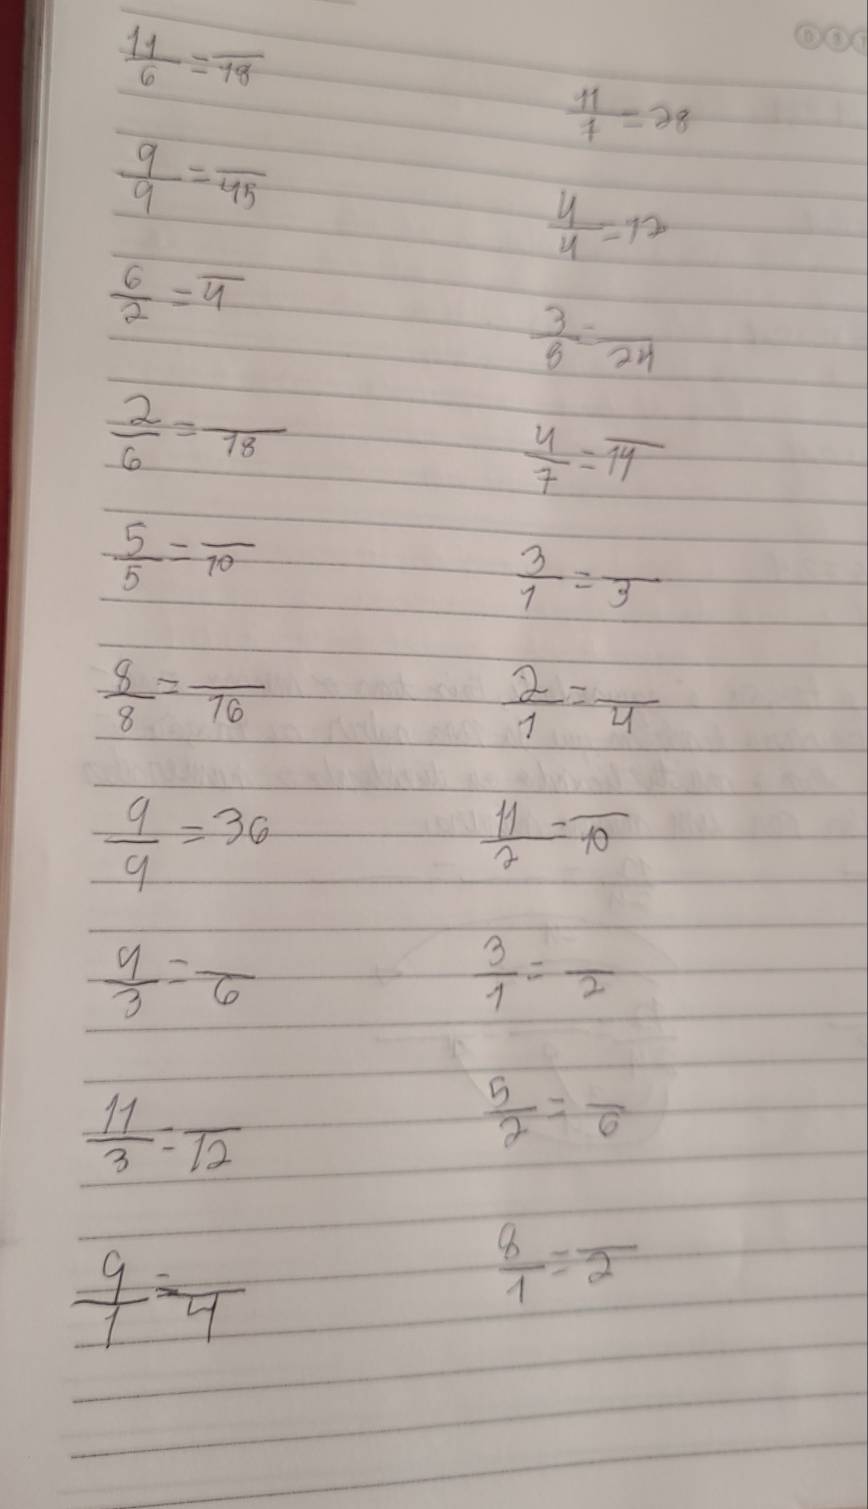 11/6 = —/18
9/9 = —/45
6/2 = —/4
2/6 = —/18
5/5 = —/10
8/8 = —/16
9/9 = 36
9/3 = —/6
11/3 = —/12
9/1 = —/4
11/7 = 28
4/4 = 12
3/8 = —/24
4/7 = —/14
3/1 = —/3
2/1 = —/4
11/2 = —/10
3/1 = —/2
5/2 = —/6
8/1 = —/2